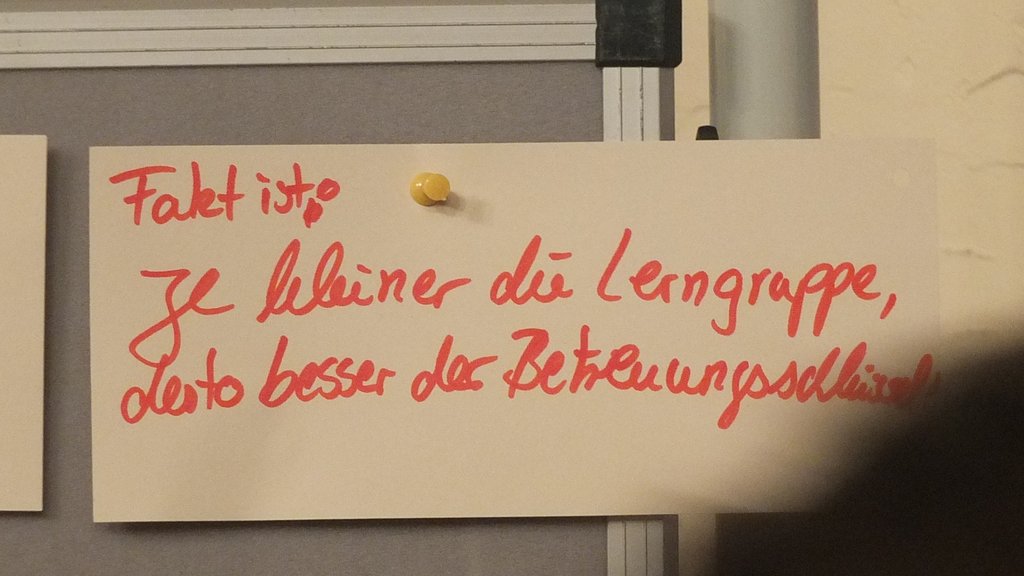 Fakt ist:
Je kleiner die Lerngruppe,
desto besser der Betreuungsschlüssel!